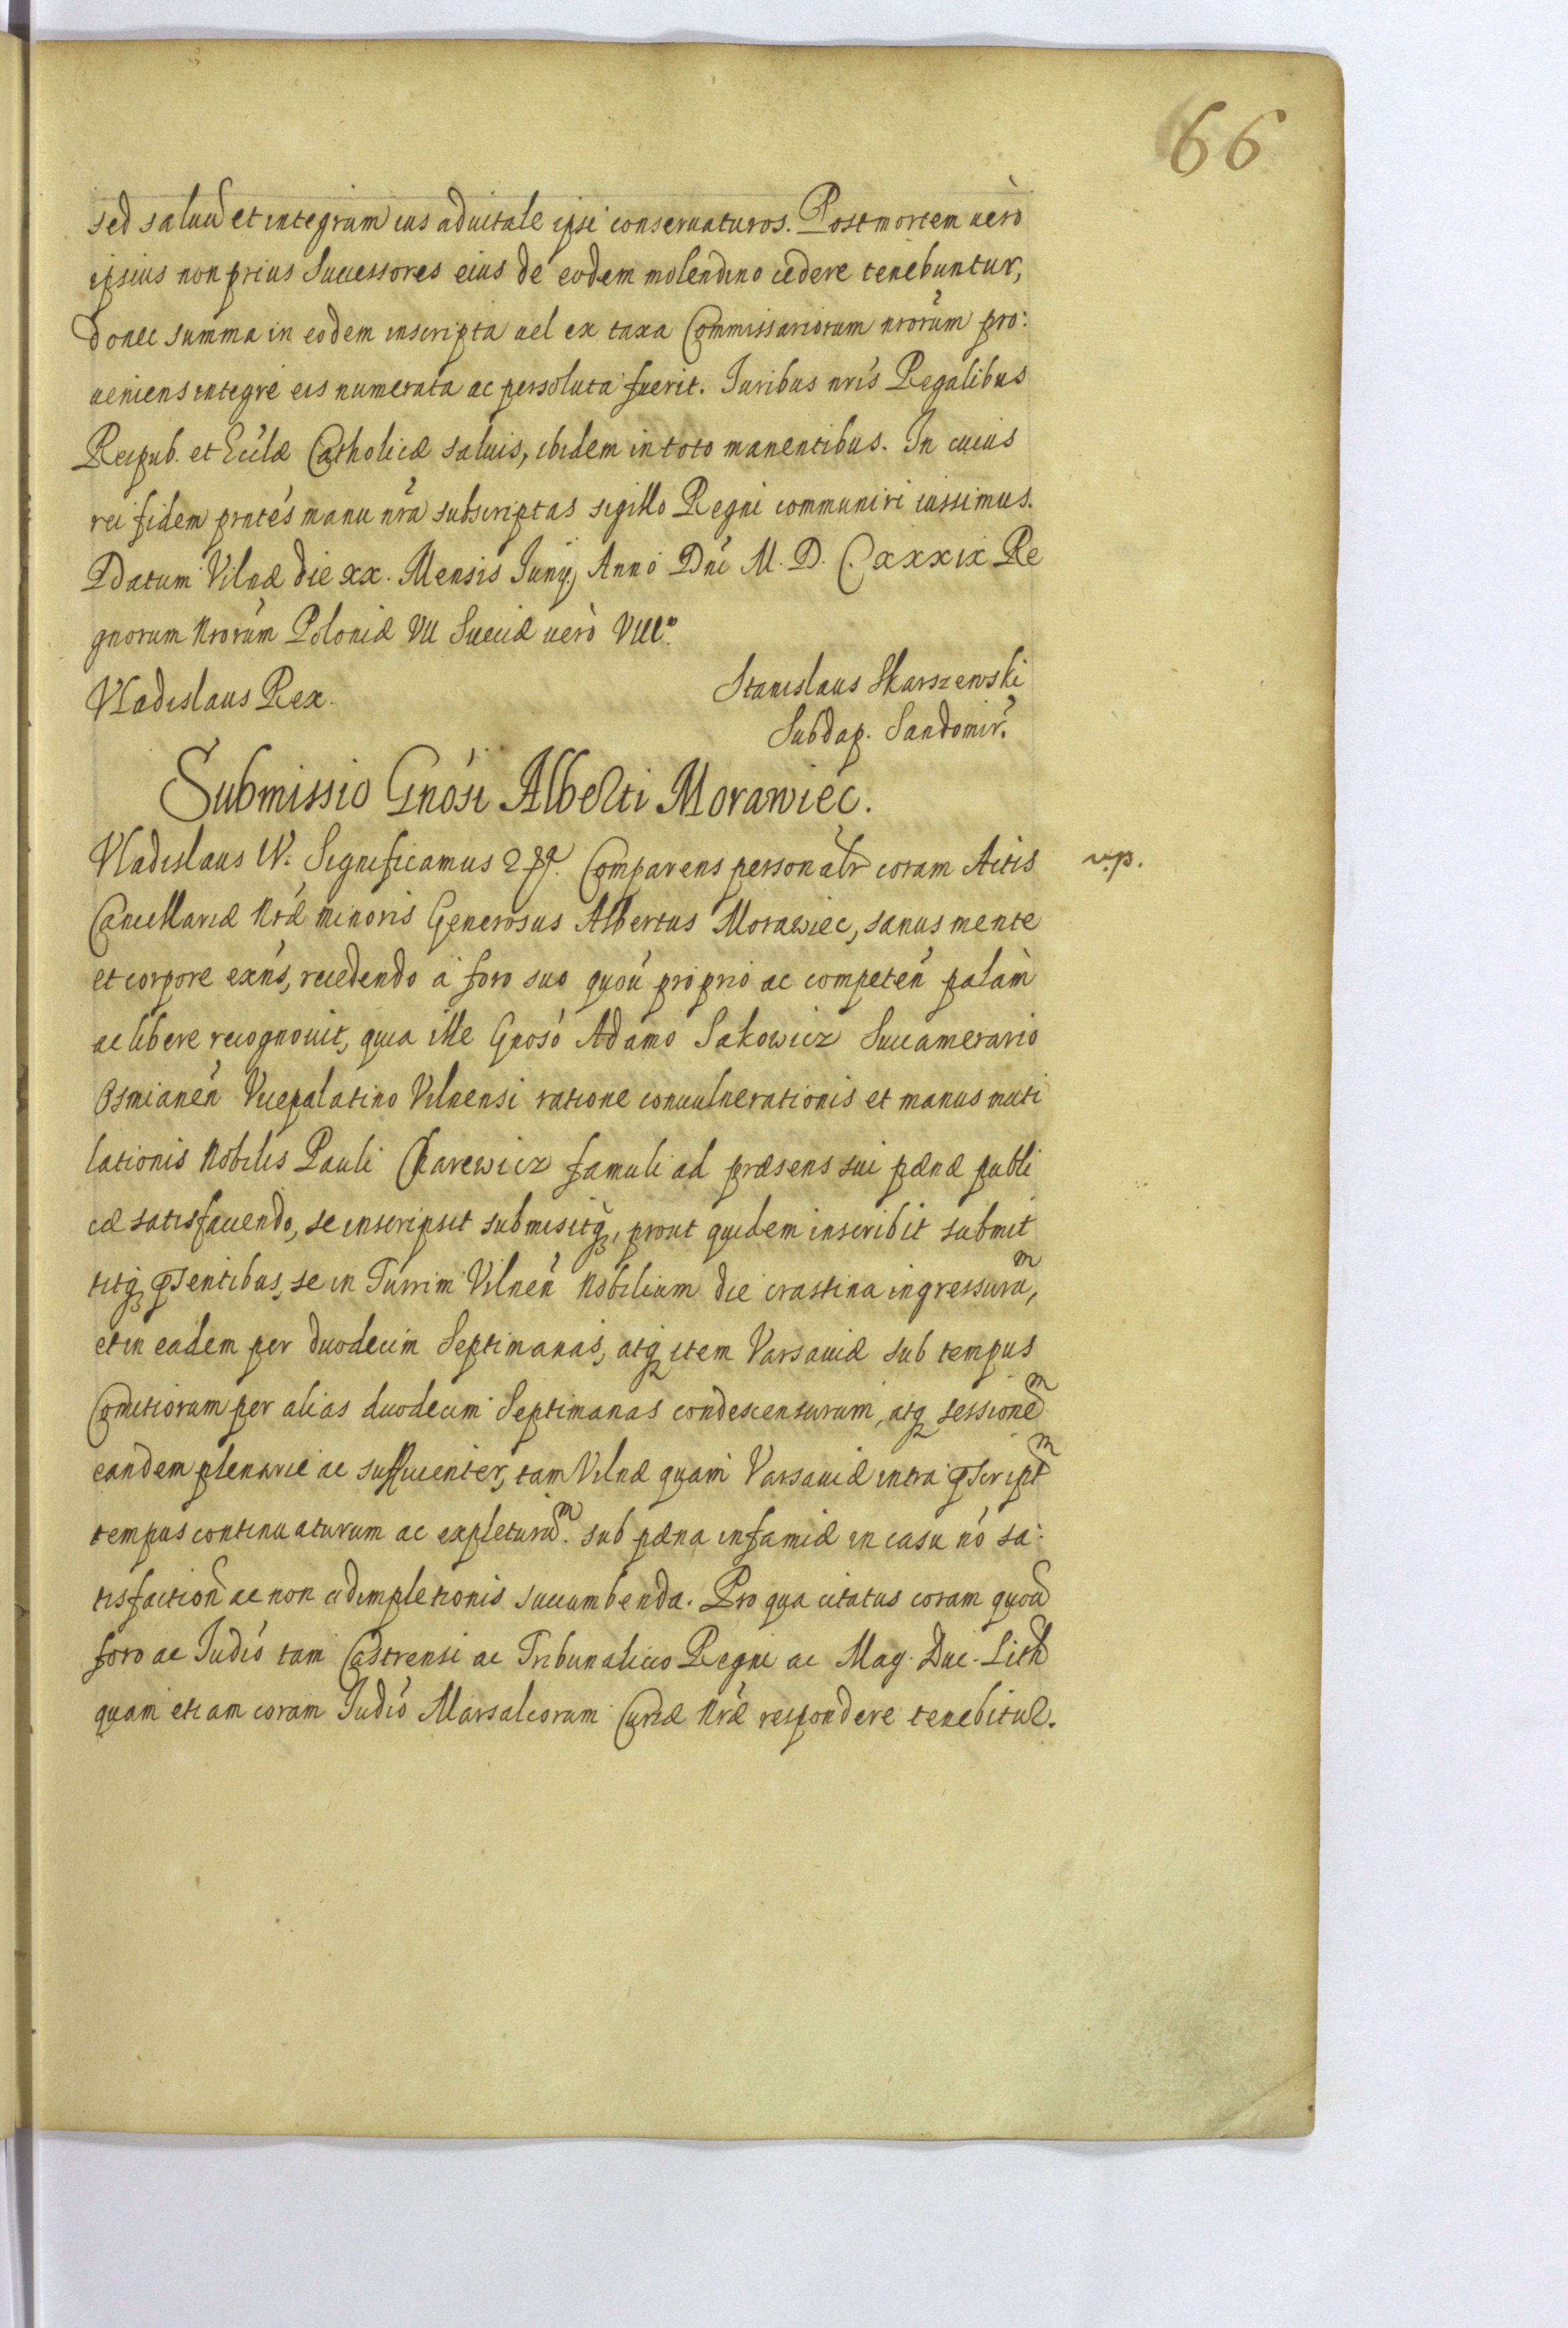 66
sed saluũ et integrum ius aduitale ipsi conseruaturos. Post mortem uerò
ipsius non prius Successores eius de eodem molendino cedere tenebuntur,
donec summa in eodem inscripta uel ex taxa Commissariorum nrorum pro:
ueniens integrè eis numerata ac persoluta fuerit. Iuribus nris Regalibus
Reipub. et Ecclæ Catholicæ saluis, ibidem in toto manentibus. In cuius
rei fidem prntes manu nra subscriptas sigillo Regni communiri iussimus.
Datum Vilnæ die xx. Mensis Iunij, Anno Dni M. D. C. xxxix Re
gnorum Nrorum Poloniæ VII Sueciæ uerò VIIIo.
Vladislaus Rex.
Stanislaus Skarszewski
Subdap. Sandomir.
Submissio Gnosi Alberti Morawiec.
Vladislaus IV. Significamus Comparens personalr coram Actis
r.p.
Cancellariæ Nræ minoris Generosus Albertus Morawiec, sanus mente
et corpore exns, recedendo à foro suo quou proprio ac competeñ palàm
ac libere recognouit, quia ille Gnoso Adamo Sakowicz Succamerario
Osmianeñ Vicepalatino Vilnensi ratione conuulnerationis et manus muti
lationis Nobilis Pauli Charewicz famuli ad præsens sui pænæ publi
cæ satisfaciendo, se inscripsit submisitq, prout quidem inscribit submit
titq pæsentibus, se in Turrim Vilneñ Nobilium die crastina ingressurum,
et in eadem per duodecim Septimanas, atq item Varsauiæ sub tempus
Comitiorum per alias duodecim Septimanas condescensurum, atq sessionem
eandem plenarie ac sufficienter, tam Vilnæ quam Varsauiæ intra præscriptm
tempus continuaturum ac expleturum. sub pæna infamiæ in casu nõ sa:
tisfaction ac non adimpletionis succumbenda. Pro qua citatus coram quou
foro ac Iudio tam Castrensi ac Tribunalicio Regni ac Mag. Duc. Lith
quam etiam coram Iudio Marsalcorum Curiæ Nræ respondere tenebitur.